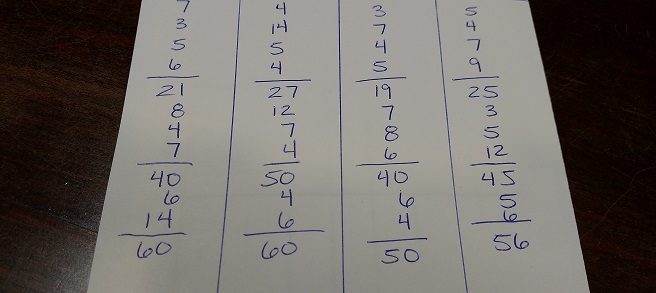 7 4 3 5
3 14 7 4
5 5 4 7
6 4 5 9
21 27 19 25
8 12 7 3
4 7 8 5
7 4 6 12
40 50 40 45
6 4 6 5
14 6 4 6
60 60 50 56